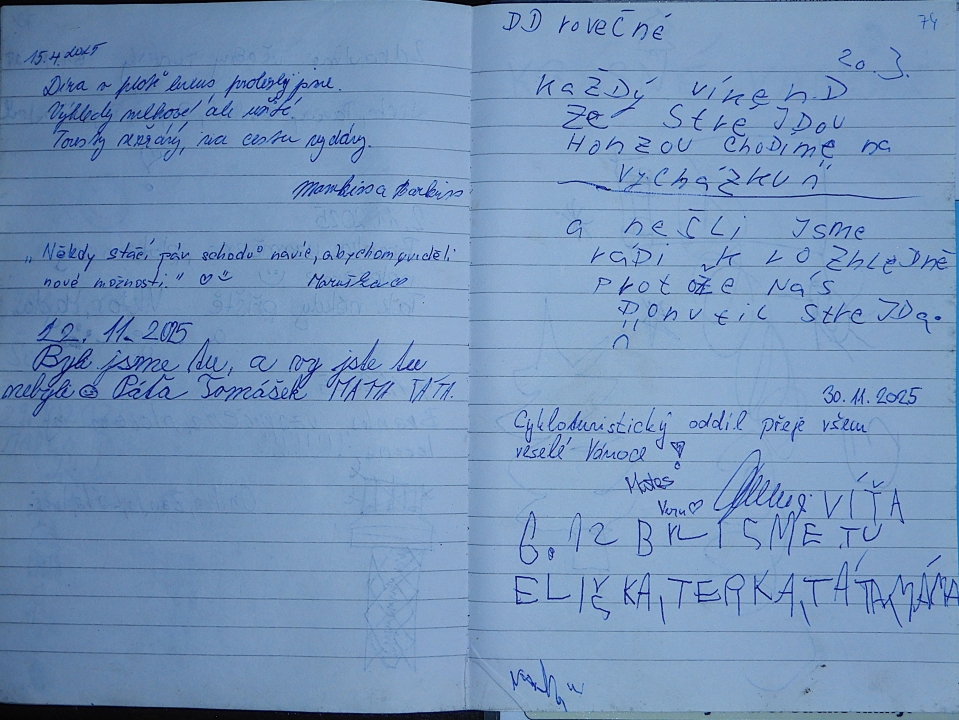 15.4.2025
Díra v plotě
Výhledy ale
Tousty na cestu
„Někdy stačí pár schodů navíc, abychom viděli
nové možnosti." ♡☺ Maruška♡
12. 11. 2025
Byli jsme tu, a vy jste tu
nebyli ☺ Páťa Tomášek MAMA TÁTA.
74
DD rovečné
20.3.
KaŽDý víKenD
ZE StrEJDou
HonZou choDíme na
vychÁZKu
a neŠLi JSme
ráDi K roZhLeDně
protože NáS
Donutil StreJDa.
30.11.2025
Cykloturistický oddíl přeje všem
veselé Vánoce
Matěs
VÍŤA
6. 12 BYLI SME TU
ELIŠKA, TERKA, TÁTA, MÁMA